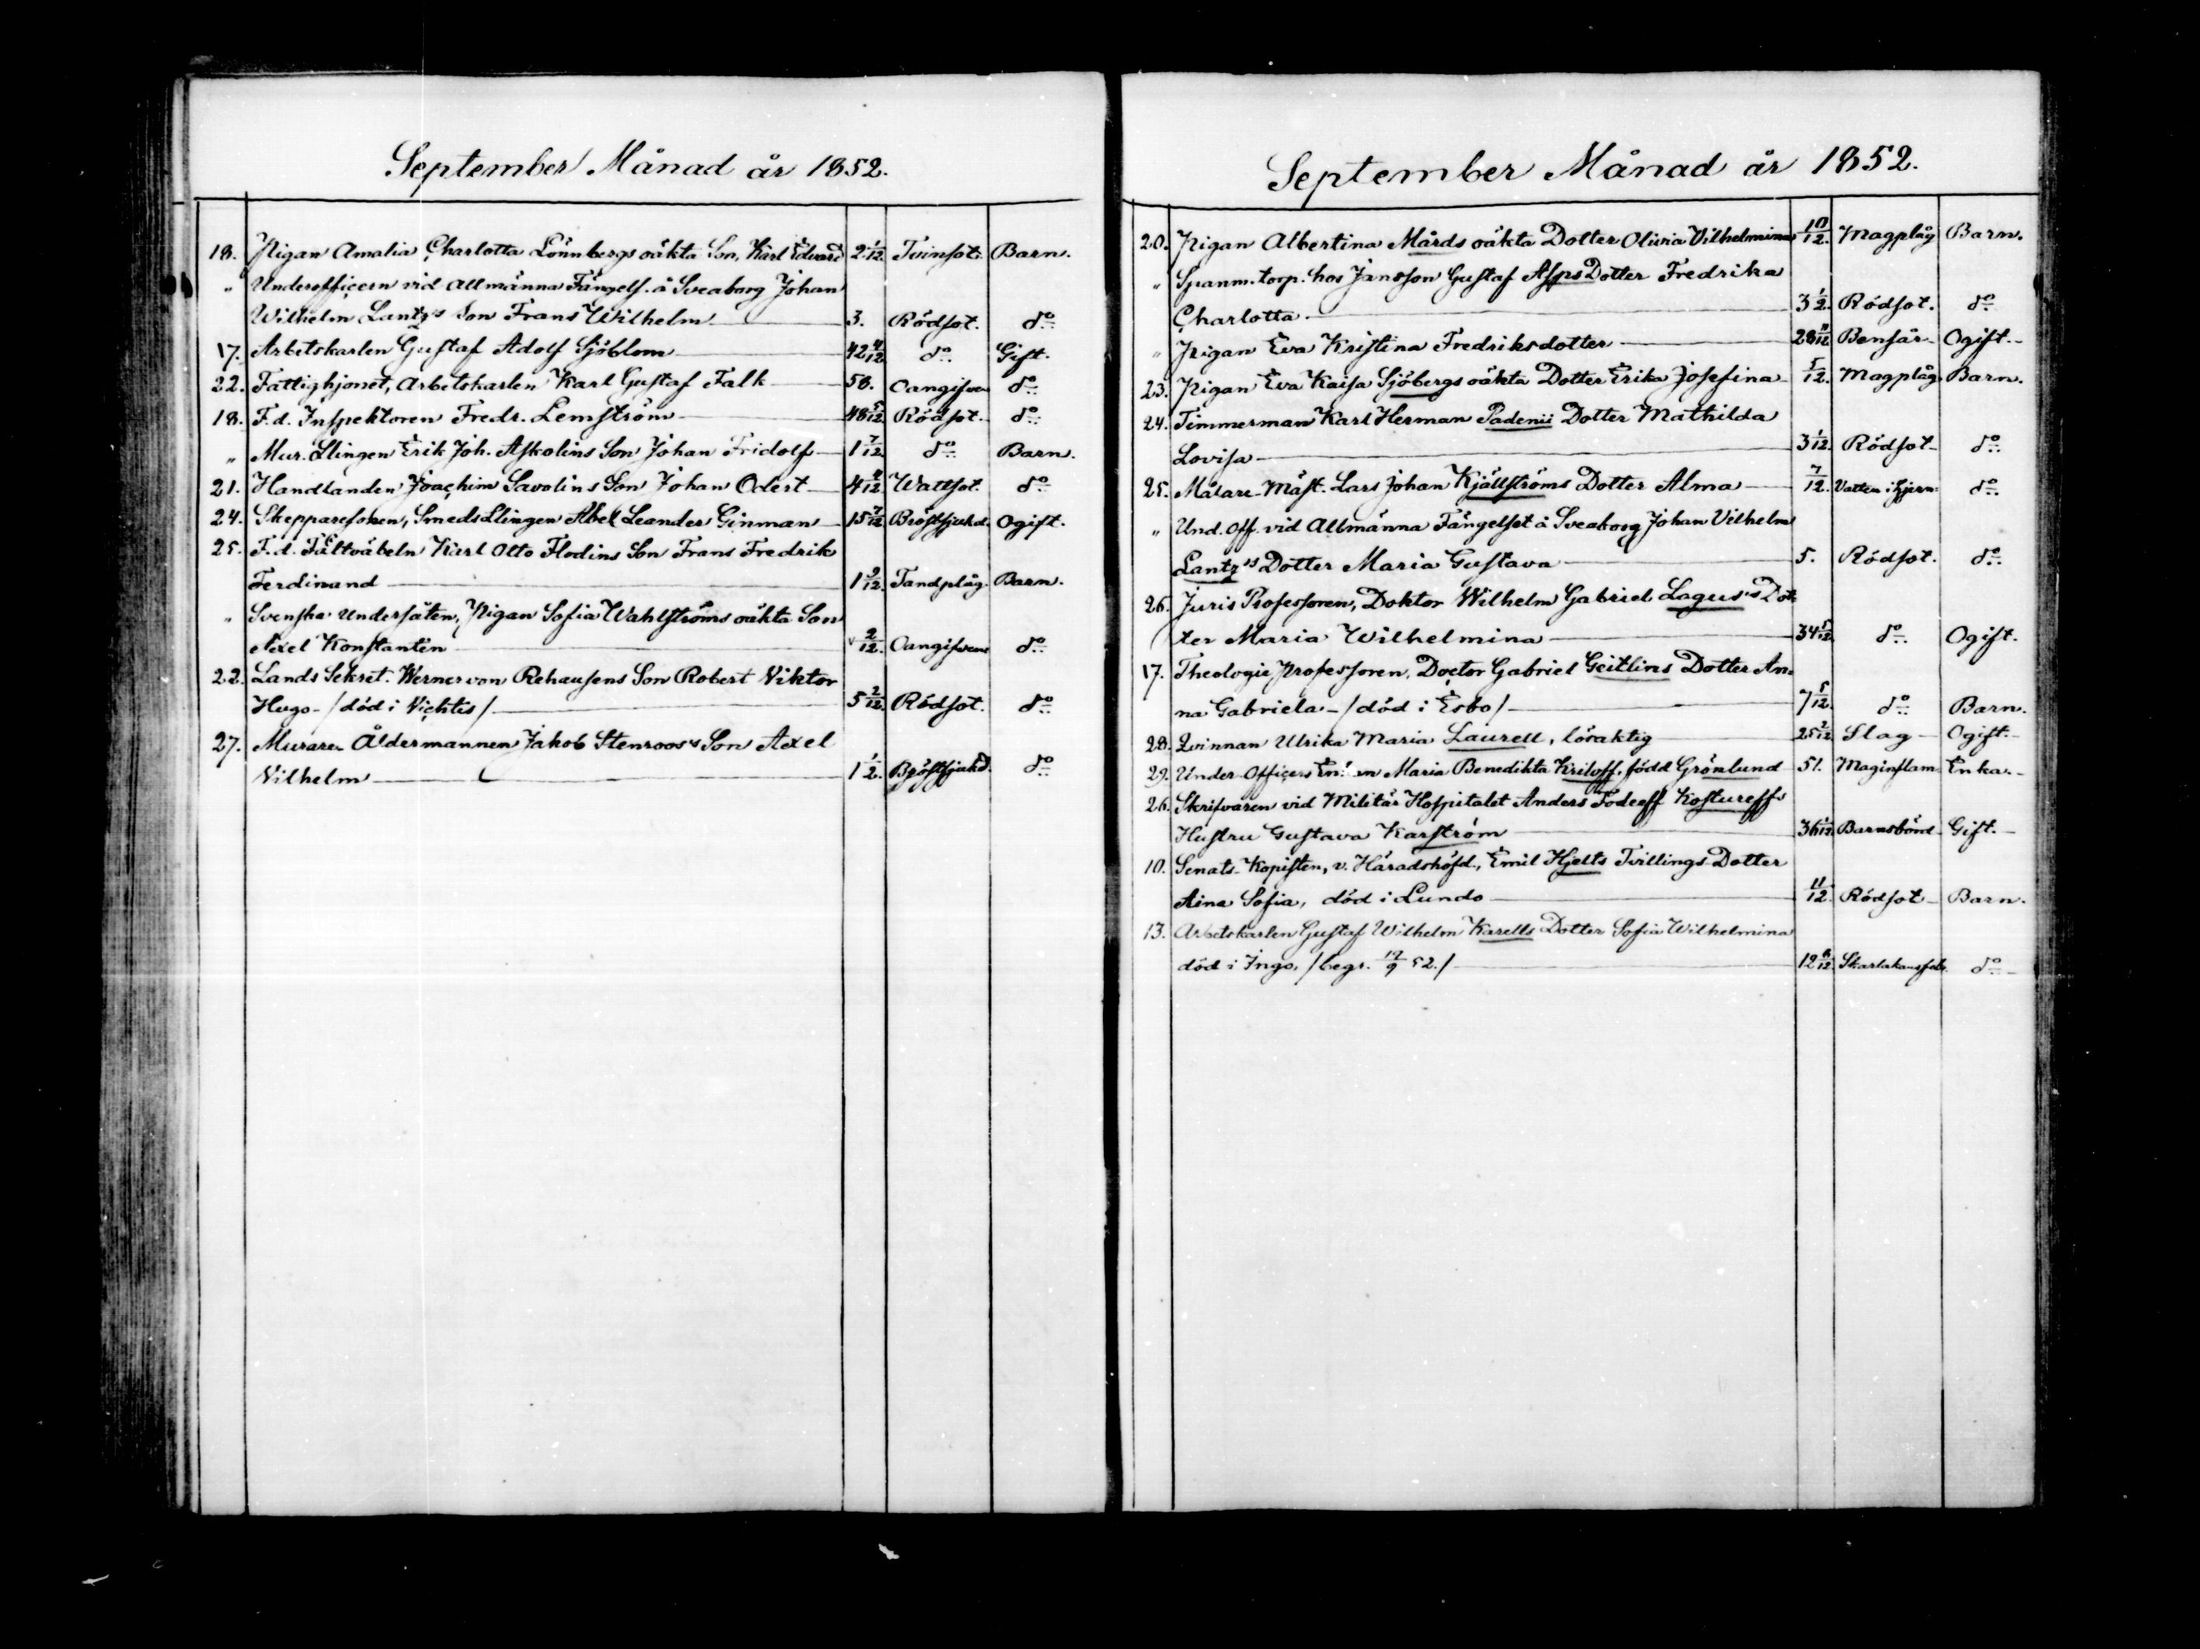 September Månad år 1852.
18. Pigan Amalia Charlotta Lönnbergs oäkta Son, Karl Edvard 2 1/12. Tvinsot. Barn.
" Underofficern vid Allmänna Fängels. å Sveaborg Johan
Wilhelm Lantz's Son Frans Wilhelm 3. Rödsot. do
17. Arbetskarlen Gustaf Adolf Sjöblom 42 4/12 do Gift.
22. Fattighjonet, Arbetskarlen Karl Gustaf Falk 58. Oangifven do
18. F.d. Inspektoren Fredr. Lemström 48 5/12. Rödsot. do
" Mur. Llingen Erik Joh. Askolins Son Johan Fridolf 1 7/12 do Barn.
21. Handlanden Joachim Savolins Son Johan Odert 4 11/12 Wattsot. do
24. Skepparesonen, Smeds Llingen Abel Leander Ginman 15 7/12 Bröstsjukd. Ogift.
25. F.d. Fältväbeln Karl Otto Flodins Son Frans Fredrik
Ferdinand 1 9/12. Tandplåg. Barn.
" Svenska Undersåten, Pigan Sofia Wahlströms oäkta Son
Axel Konstantin 2/12. Oangifven do
22. Lands Sekret. Werner von Rehausens Son Robert Viktor
Hugo - /död i Vichtis/ 5 2/12. Rödsot. do
27. Murare Åldermannen Jakob Stenroos's Son Axel
Vilhelm 1 1/2. Bröstsjukd. do
September Månad år 1852.
20. Pigan Albertina Mårds oäkta Dotter Olivia Vilhelmina 10/12. Magplåg Barn.
" Spanm. torp. hos Jansson Gustaf Asps Dotter Fredrika
Charlotta 3 1/2. Rödsot. do
" Pigan Eva Kristina Fredriksdotter 28 11/12 Bensår Ogift.
23. Pigan Eva Kaisa Sjöbergs oäkta Dotter Erika Josefina 5/12. Magplåg. Barn.
24. Timmerman Karl Herman Padenii Dotter Mathilda
Lovisa 3 1/12. Rödsot do
25. Målare-Mäst. Lars Johan Kjällströms Dotter Alma 7/12. Vatten i hjern. do
" Und. Off. vid Allmänna Fängelset å Sveaborg Johan Vilhelm
Lantz's Dotter Maria Gustava 5. Rödsot. do
26. Juris Professoren, Doktor Wilhelm Gabriel Lagus's Dot-
ter Maria Wilhelmina 34 5/12. do Ogift.
17. Theologie Professoren, Doctor Gabriel Geitlins Dotter An-
na Gabriela - /död i Esbo/ 7 5/12. do Barn.
28. Qvinnan Ulrika Maria Laurell, lösaktig 25 2/12 Slag Ogift.
29. Under Officers Enkan Maria Benedikta Kriloff, född Grönlund 51. Maginflam Enka.
26. Skrifvaren vid Militär Hospitalet Anders Fodeeff Kostureffs
Hustru Gustava Karström 36 1/12. Barnsbörd Gift.
10. Senats-Kopisten, v. Häradshöfd., Emil Hjelts Tvillings Dotter
Aina Sofia, död i Lundo 11/12. Rödsot Barn.
13. Arbetskarlen Gustaf Wilhelm Karells Dotter Sofia Wilhelmina
död i Ingo. /begr. 17/9 52./ 12 6/12. Skarlakansfeb. do